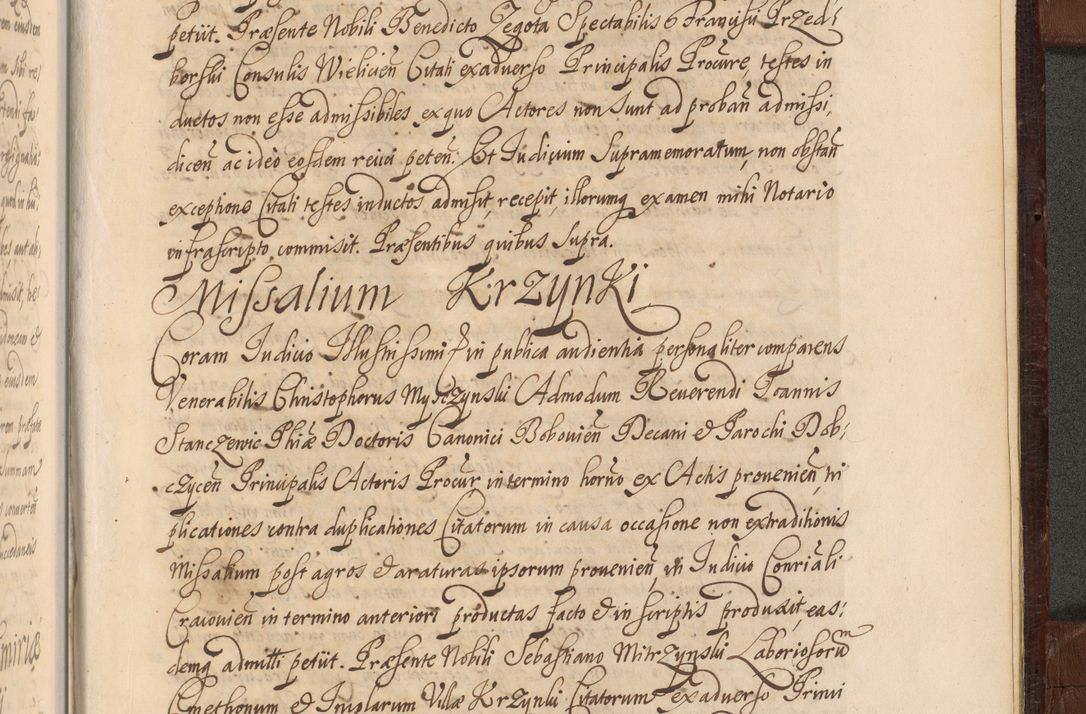 petiit. Præsente Nobili Benedicto Zegota Spectabilis Francisci Przed:
borski Consulis Wielicien̄ Citati ex adverso Principalis Procure, testes in
ductos non esse admissibiles ex quo Actores non sunt ad proban̄ admissi,
dicen̄ ac ideo eosdem reiici peten̄. Et Judicium supramemoratum, non obstan̄
exceptione Citati testes inductos admisit, recepit, illorumq examen mihi Notario
infrascripto commisit. Præsentibus quibus supra.
Missalium Krzynki
Coram Judicio Illustrissimi in publica audientia personaliter comparens
Venerabilis Christophorus Mysczynski Admodum Reverendi Joannis
Stanczewic Phiæ Doctoris Canonici Bobovien̄ Decani & Parochi Dob:
czycen̄ Principalis Actoris Procur in termino horno ex Actis provenien̄, tri
plicationes contra duplicationes Citatorum in causa occasione non extraditionis
Missalium post agros & araturas ipsorum provenien̄, in Judicio Conriali
Cracovien̄ in termino anteriori productas facto & in scriptis produxit, eas:
demq admitti petiit. Præsente Nobili Sebastiano Mitrzynski Laboriosorū
Cmethonum & Incolarum Villæ Krzynki Citatorum ex adverso Princi